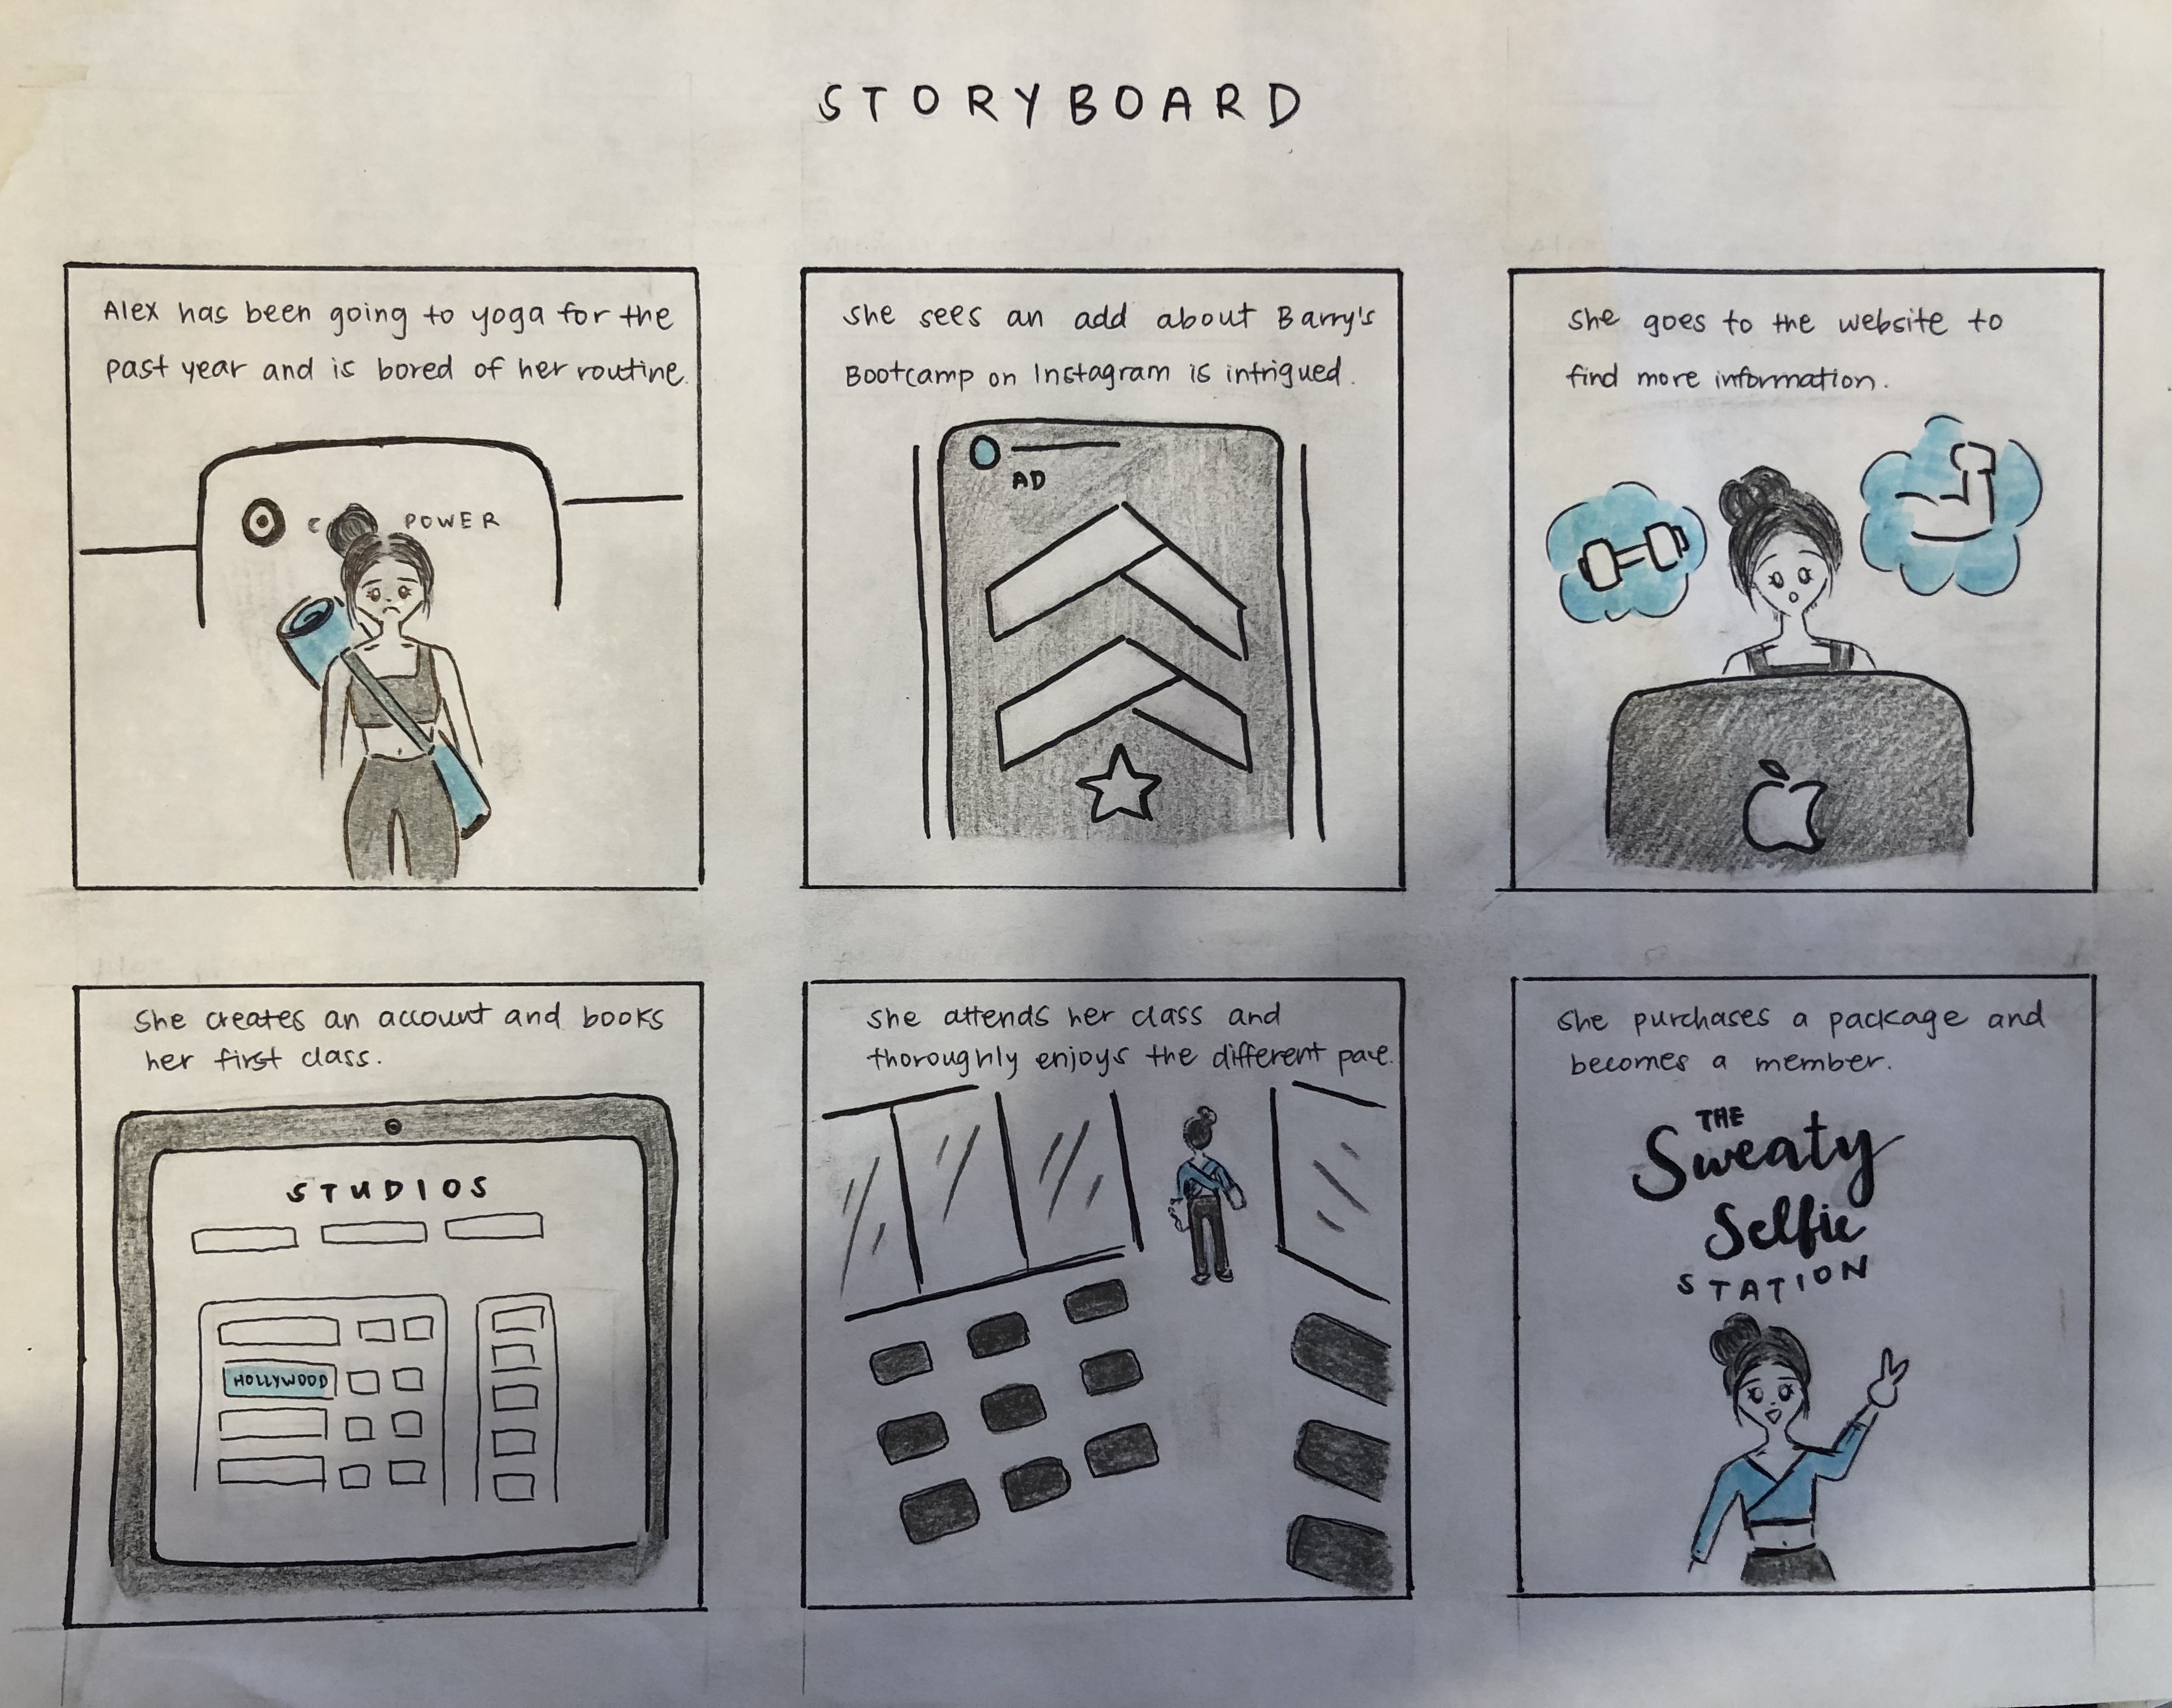 STORYBOARD
Alex has been going to yoga for the
past year and is bored of her routine.
C POWER
She sees an add about Barry's
Bootcamp on Instagram is intrigued.
AD
She goes to the website to
find more information.
She creates an account and books
her first class.
STUDIOS
HOLLYWOOD
She attends her class and
thoroughly enjoys the different pace.
She purchases a package and
becomes a member.
THE
Sweaty
Selfie
STATION